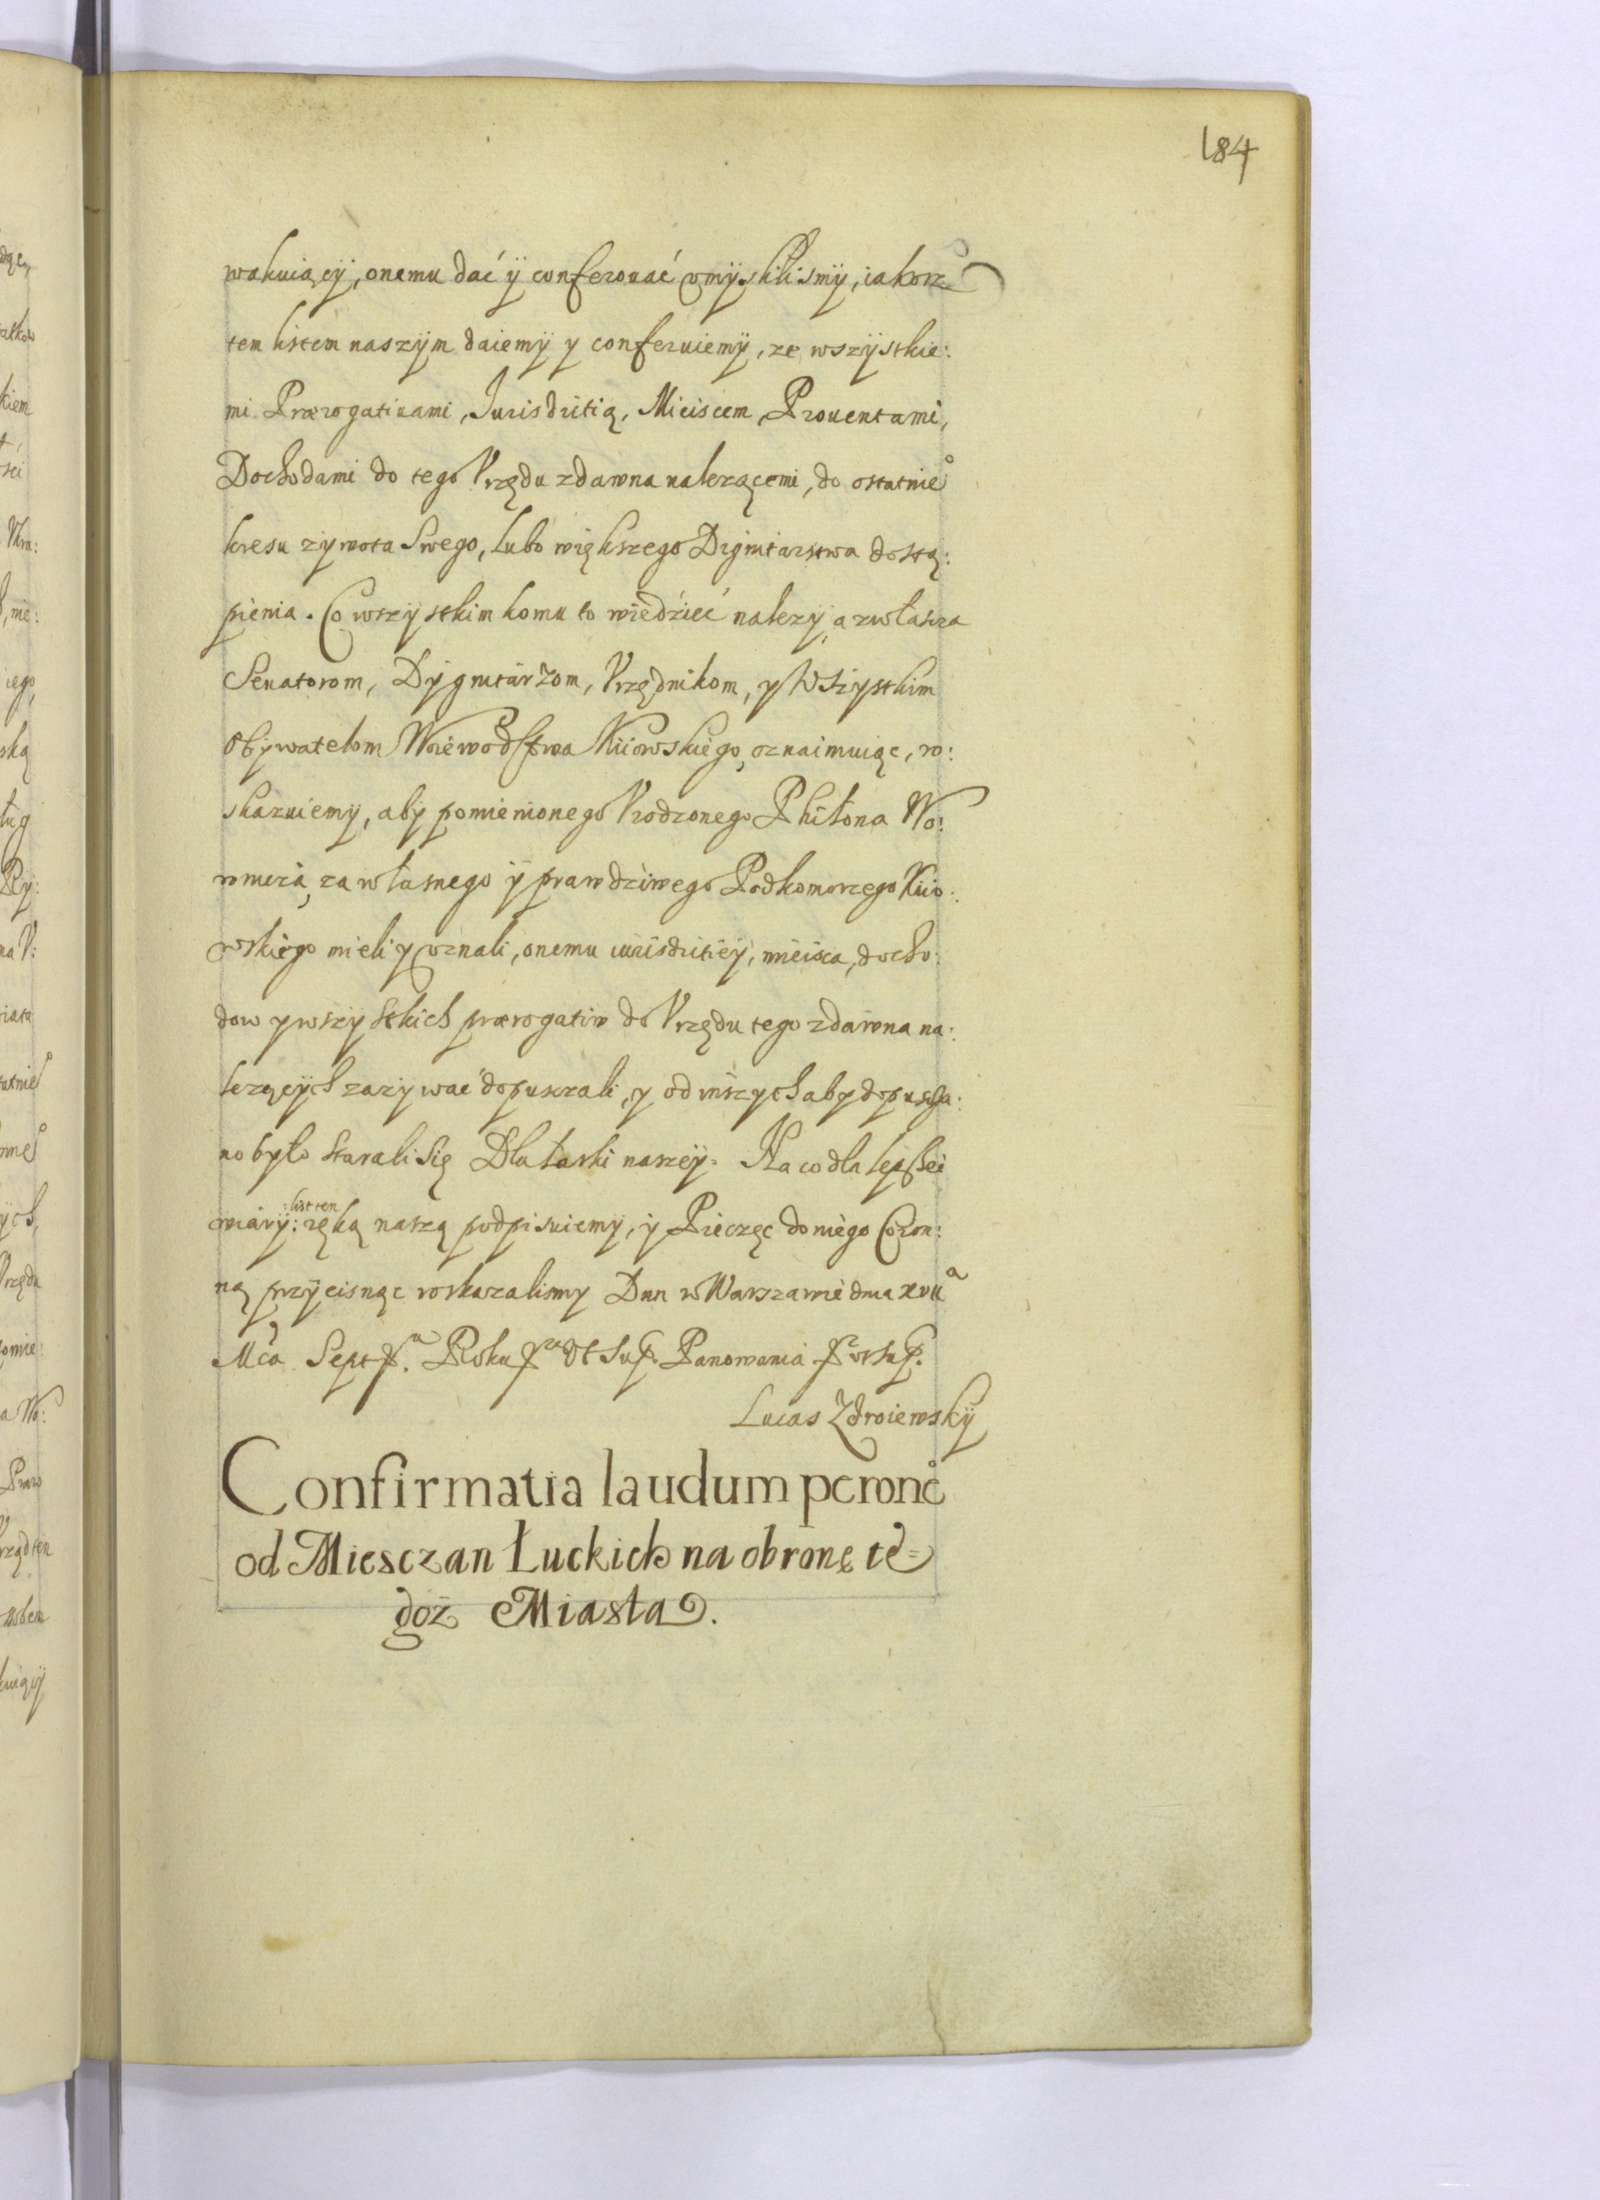 184
wakuiącÿ, onemu dać ÿ conferować vmÿsliliśmÿ, iakosz
tem listem naszÿm daiemÿ y conferuiemÿ, ze wszÿstkie:
mi Prærogatiuami, Jurisdictią, Mieiscem, Prouentami,
Dochodami do tego Vrzędu zdawna nalezącemi, do ostatnie°
kresu zywota Swego, lubo większego Digintarstwa dostą:
pienia. Co wszÿstkim komu to wiedzieć nalezy, a zwłascza
Senatorom, Dygnitarzom, Vrzędnikom, y Wszystkim
Obÿwatelom Woiewodstwa Kiiowskiego, oznaimuiąc, ro:
skazuiemy, aby pomienionego Vrodzonego Philona Wo:
ronicza, za własnego ÿ prawdziwego Podkomorzego Kiio:
wskiego mieli y vznali, onemu iurisdictiey, mieisca, docho:
dow y wszystkich prærogatiw do Vrzędu tego zdawna na:
lezącÿch zazÿwać dopuszali, y od inszych aby dopuscza:
no było starali się Dla łaski naszeÿ. Na co dla lepszei
wiarÿ: list ten ręką naszą podpisuiemÿ, ÿ Pieczęc do niego Coron:
ną przÿcisnąc roskazalismy Dan w Warszawie dnia xvii a
Mca Septbra. Roku pa vt sup. Panowania pa vt sup.
Lucas Zdroiewskÿ
Confirmatia laudum pewne°
od Miesczan Łuckich na obronę te=
goż Miasta.
dząc
kiem
Wo:
nie:
iego,
ską
Vrzędu
a Wo:
kuiącÿ